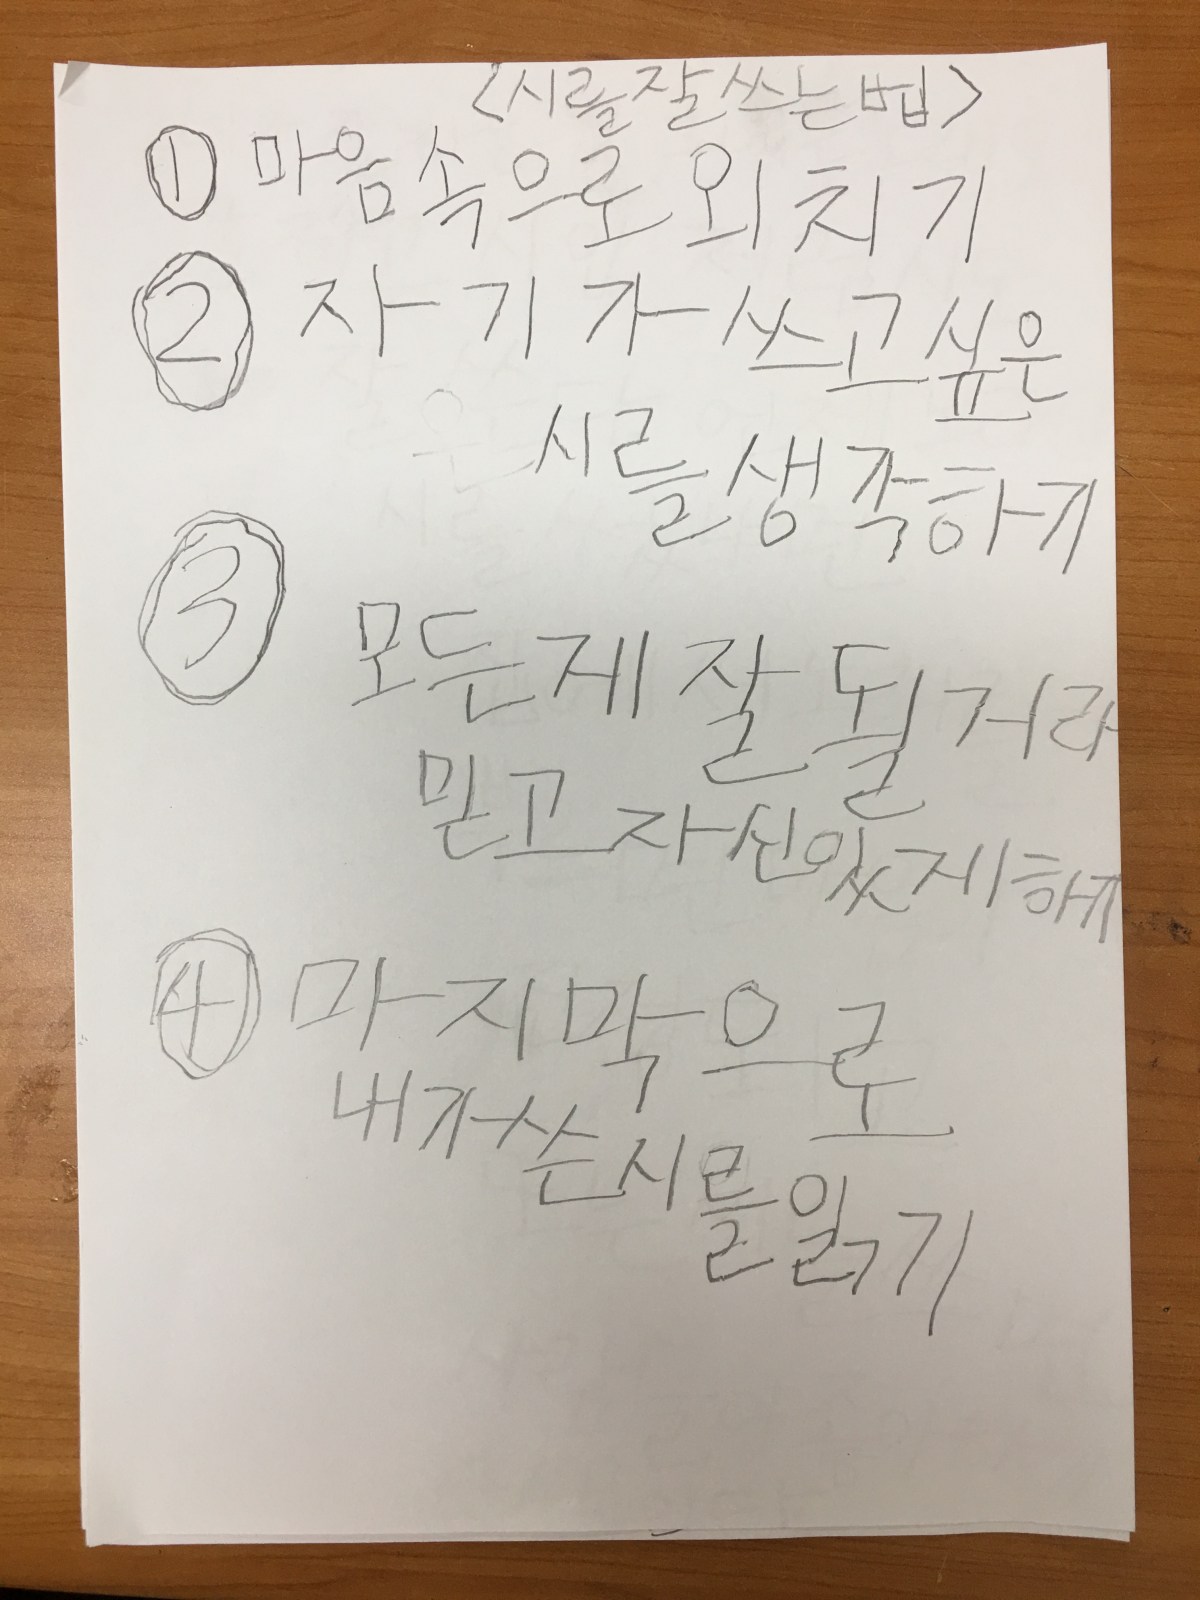 <시를 잘 쓰는 법>
① 마음속으로 외치기
② 자기가 쓰고 싶은
시를 생각하기
③ 모든 게 잘 될 거라
믿고 자신있게 하기
④ 마지막으로
내가 쓴 시를 읽기